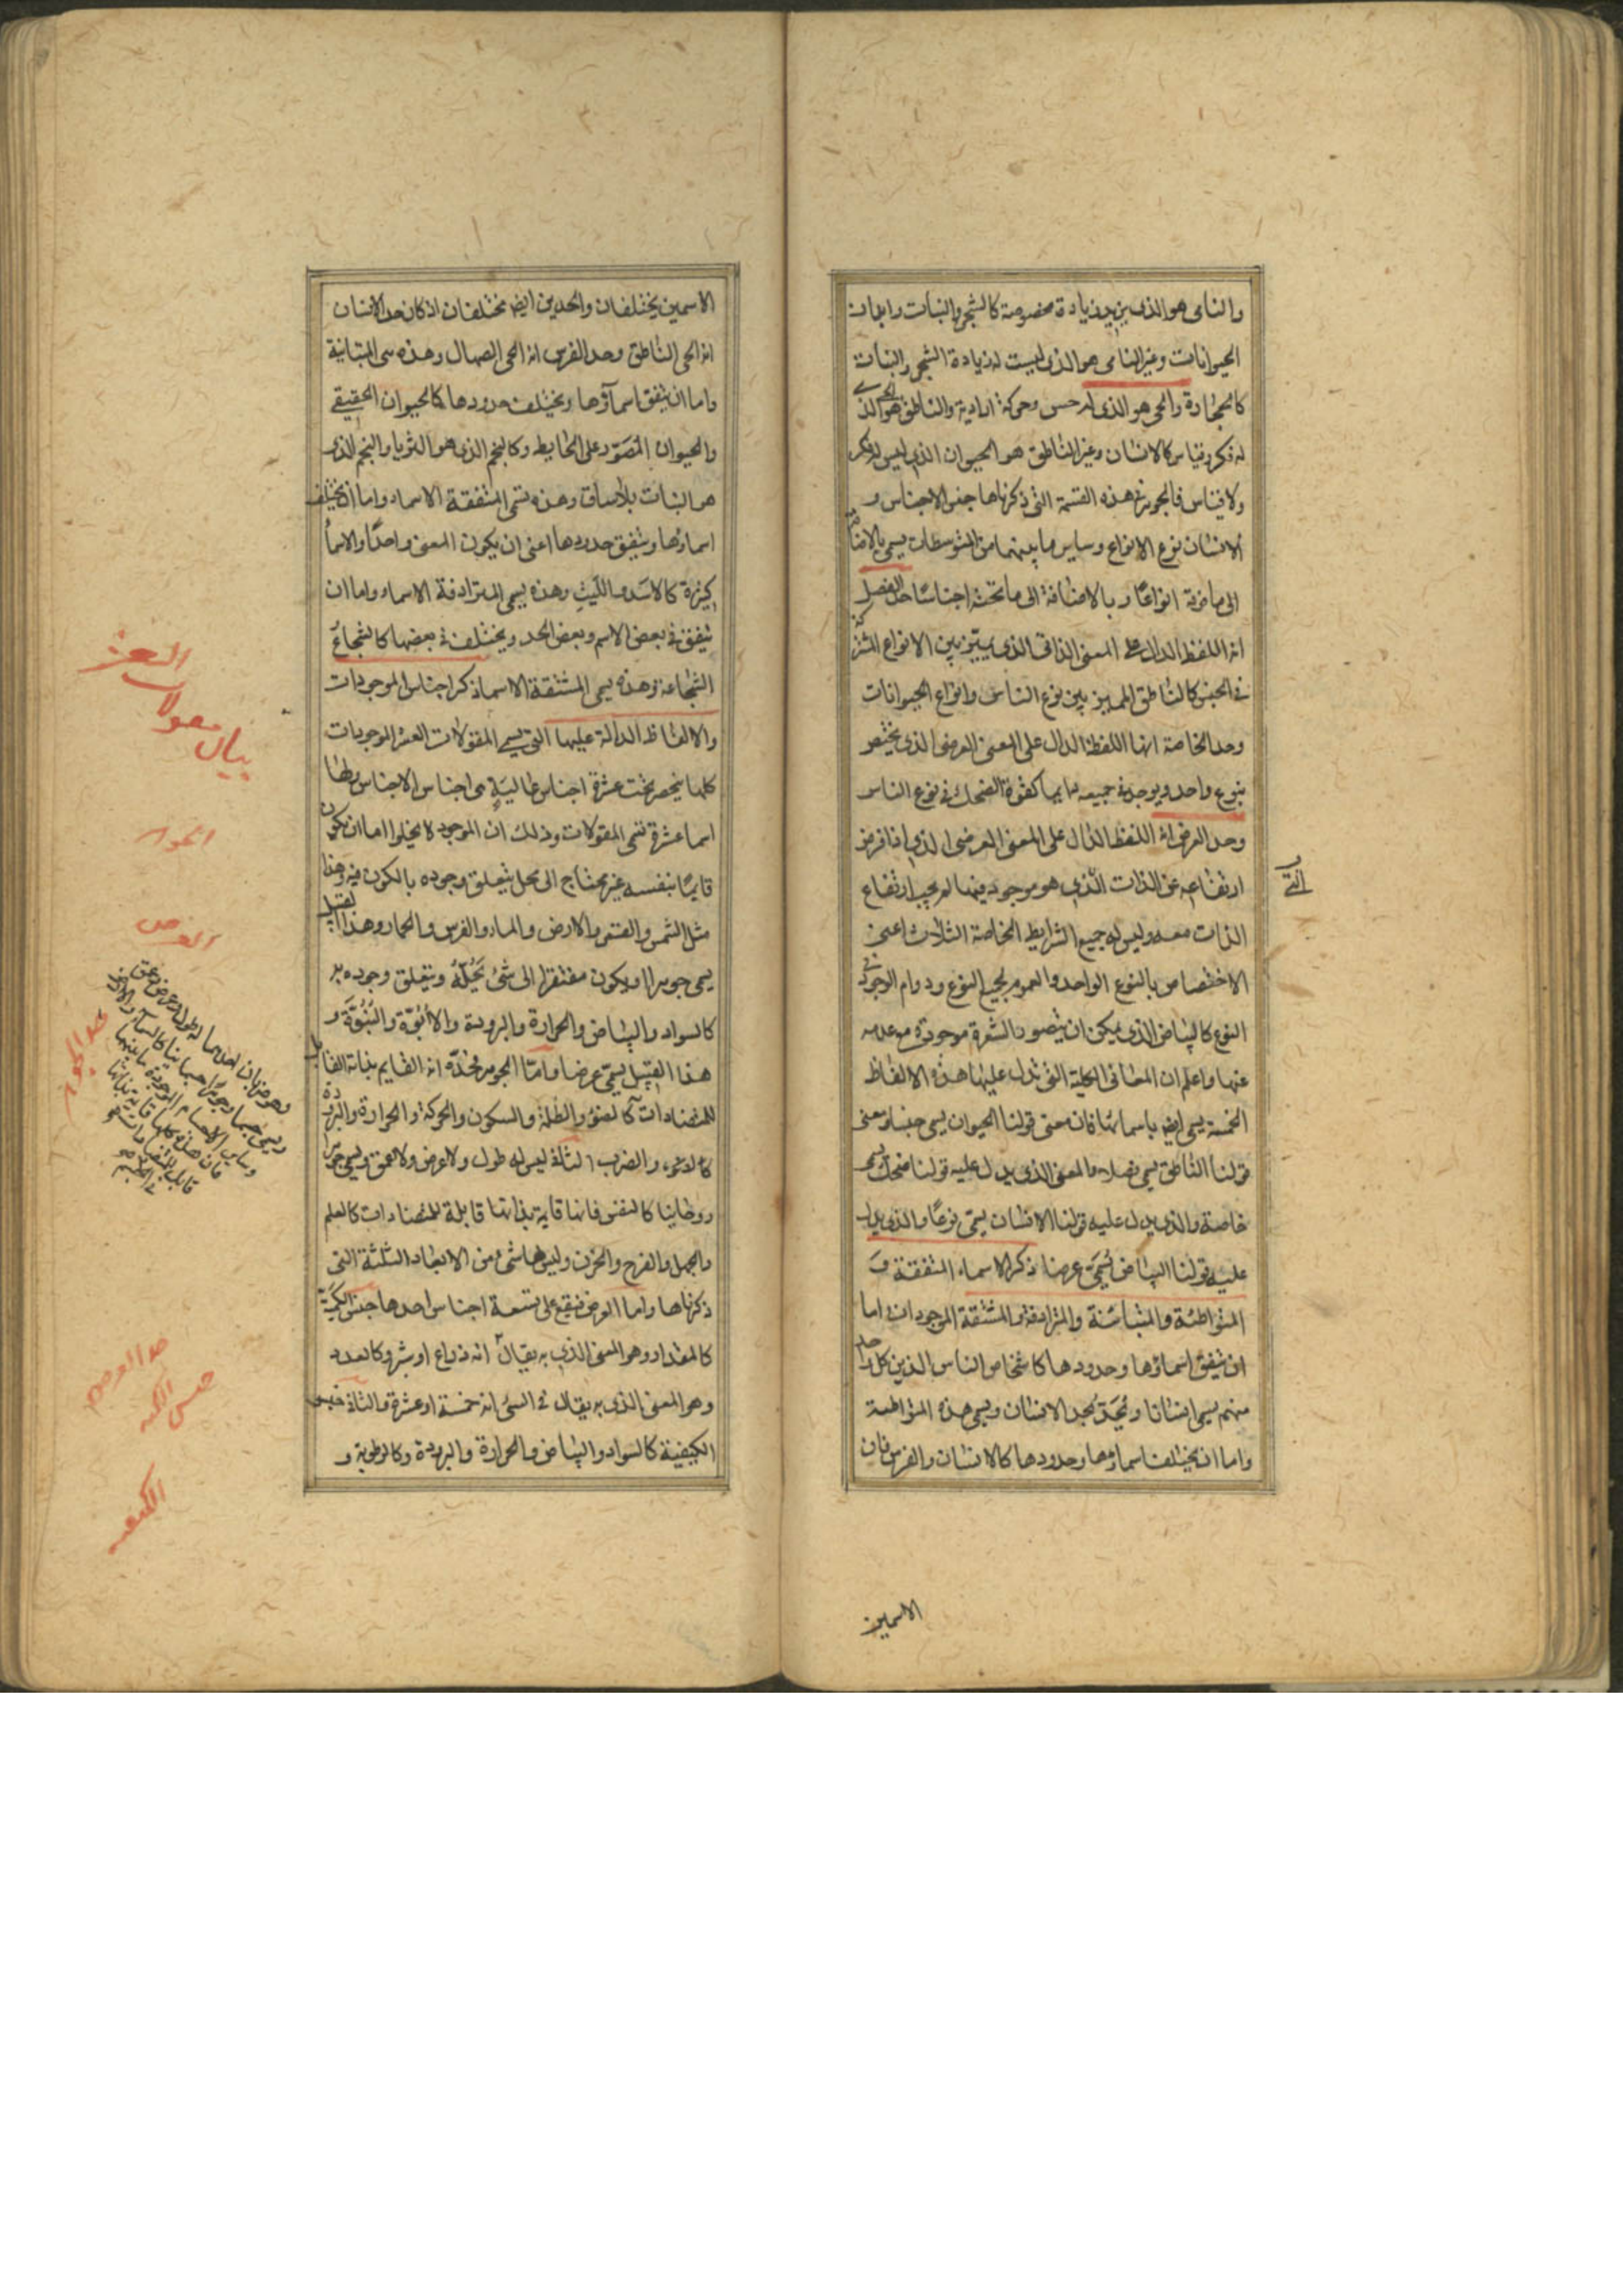 والنامى هو الذى يزيد زيادة مخصوصة كالشجر والنبات وابدان
الحيوانات وغير النامى هو الذى ليست له زيادة الشجر والنبات
كالحجارة والحى هو الذى له حس وحركة ارادية والناطق هو الحى الذى
له فكر وقياس كالانسان وغير الناطق هو الحيوان الذى ليس له فكر
ولا قياس فالجوهر فى هذه القسمة التى ذكرناها جنس الاجناس و
الانسان نوع الانواع وساير ما بينهما من المتوسطات يسمى بالاضافة
الى ما فوقه انواعًا وبالاضافة الى ما تحته اجناسًا حد الفصل
انه اللفظ الدال على المعنى الذاتى الذى يميز بين الانواع المشتركة
فى الجنس كالناطق المميز بين نوع الناس وانواع الحيوانات
وحد الخاصة انها اللفظة الدال على المعنى العرضى الذى يختص
بنوع واحد ويوجد فى جميعه دايما كقوة الضحك فى نوع الناس
وحد العرض انه اللفظ الدال على المعنى العرضى الذى اذا فرض
ارتفاعه عن الذات الذى هو موجود فيها لم يجب ارتفاع
الذات معه وليس له جميع الشرايط الخاصة الثلاث اعنى
الاختصاص بالنوع الواحد والعموم لجميع النوع ودوام الوجود فى
النوع كالبياض الذى يمكن ان يتصور الشعرة موجودة مع عدمه
عنها واعلم ان المعانى الكلية التى تدل عليها هذه الالفاظ
الخمسة يسمى ايضا باسمائها فان معنى قولنا الحيوان يسمى جنسا ومعنى
قولنا الناطق يسمى فصلا والمعنى الذى يدل عليه قولنا ضحك يسمى
خاصة والذى يدل عليه قولنا الانسان يسمى نوعًا والذى يدل
عليه قولنا البياض يُسَمَّى عرضا ذكر الاسماء المتفقة و
المتواطئة والمتباينة والمترادفة والمشتقة الموجودات اما
ان تتفق اسماؤها وحدودها كاشخاص الناس الذين كل واحد
منهم يسمى انسانا ويُحَدّ بحد الانسان ويسمى هذه المتواطئة
واما ان يختلف اسماؤها وحدودها كالانسان والفرس فان
الاسمين
الاسمين يختلفان والحدين ايضا مختلفان اذ كان حد الانسان
انه الحى الناطق وحد الفرس انه الحى الصهال وهذه سمى المتباينة
واما ان يتفق اسمآؤها ويختلف حدودها كالحيوان الحقيقى
والحيوان المصَوَّر على الحايط وكالنجم الذى هو الثريا والنجم الذى
هو النبات بلا ساق وهذه تسمى المتفقة الاسماء واما ان يختلف
اسماؤها ويتفق حدودها اعنى ان يكون المعنى واحدًا والاسمأ
كثيرة كالاسَد والليْث وهذه يسمى المترادفة الاسماء واما ان
يتفق فى بعض الاسم وبعض الحد ويختلف فى بعضها كالشجاع
الشجاعة وهذه يسمى المشتقة الاسما ذكر اجناس الموجودات
والالفاظ الدالة عليها التى يسمى المقولات العشر الموجودات
كلها ينحصر تحت عشرة اجناس عالية هى اجناس الاجناس ولها
اسما عشرة تسمى المقولات وذلك ان الموجود لا يخلوا اما ان يكون
قايمًا بنفسه غير محتاج الى محل يتعلق وجوده بالكون فيه وهذا
مثل الشمس والقمر والارض والماء والفرس والحمار وهذا القبيل
يسمى جوهرا او يكون مفتقرا الى شئ يَحُلّهُ ويتعلق وجوده به
كالسواد والبياض والحرارة والبرودة والاُبُوّة والبُنُوَّة و
هذا القبيل يسمى عرضا وامّا الجوهر فحَدّه انه القايم بذاته القابل
للمتضادات كالضؤ والظلمة والسكون والحركة والحرارة والبرودة
والضرب الثانى ليس له طول ولا عرض ولا عمق ويسمى جوهرا
روحانيا كالنفس فانها قايمة بذاتها قابلة للمتضادات كالعلم
والجهل والفرح والحزن وليس لها شئ من الابعاد الثلثة التى
ذكرناها واما العرض فيقع على تسعة اجناس احدها جنس الكَمِّيَّة
كالمقدار وهو المعنى الذى به يقال انه ذراع او شبر وكالعدد
وهو المعنى الذى به يقال فى الشئ انه خمسة او عشرة والثانى جنس
الكيفية كالسواد والبياض والحرارة والبرودة وكالرطوبة و
بيان مقولات العشر
الجوهر
العرض
حد الجوهر
وهو ضربان احدهما له طول وعرض وعمق
ويسمى جسما وجوهرا جسمانيا كالسمآء والارض
وساير الاجسام الموجودة ما بينهما
فان هذه كلها قايمة بذاتها
حد العرض
جنس الكمية
الكيفية